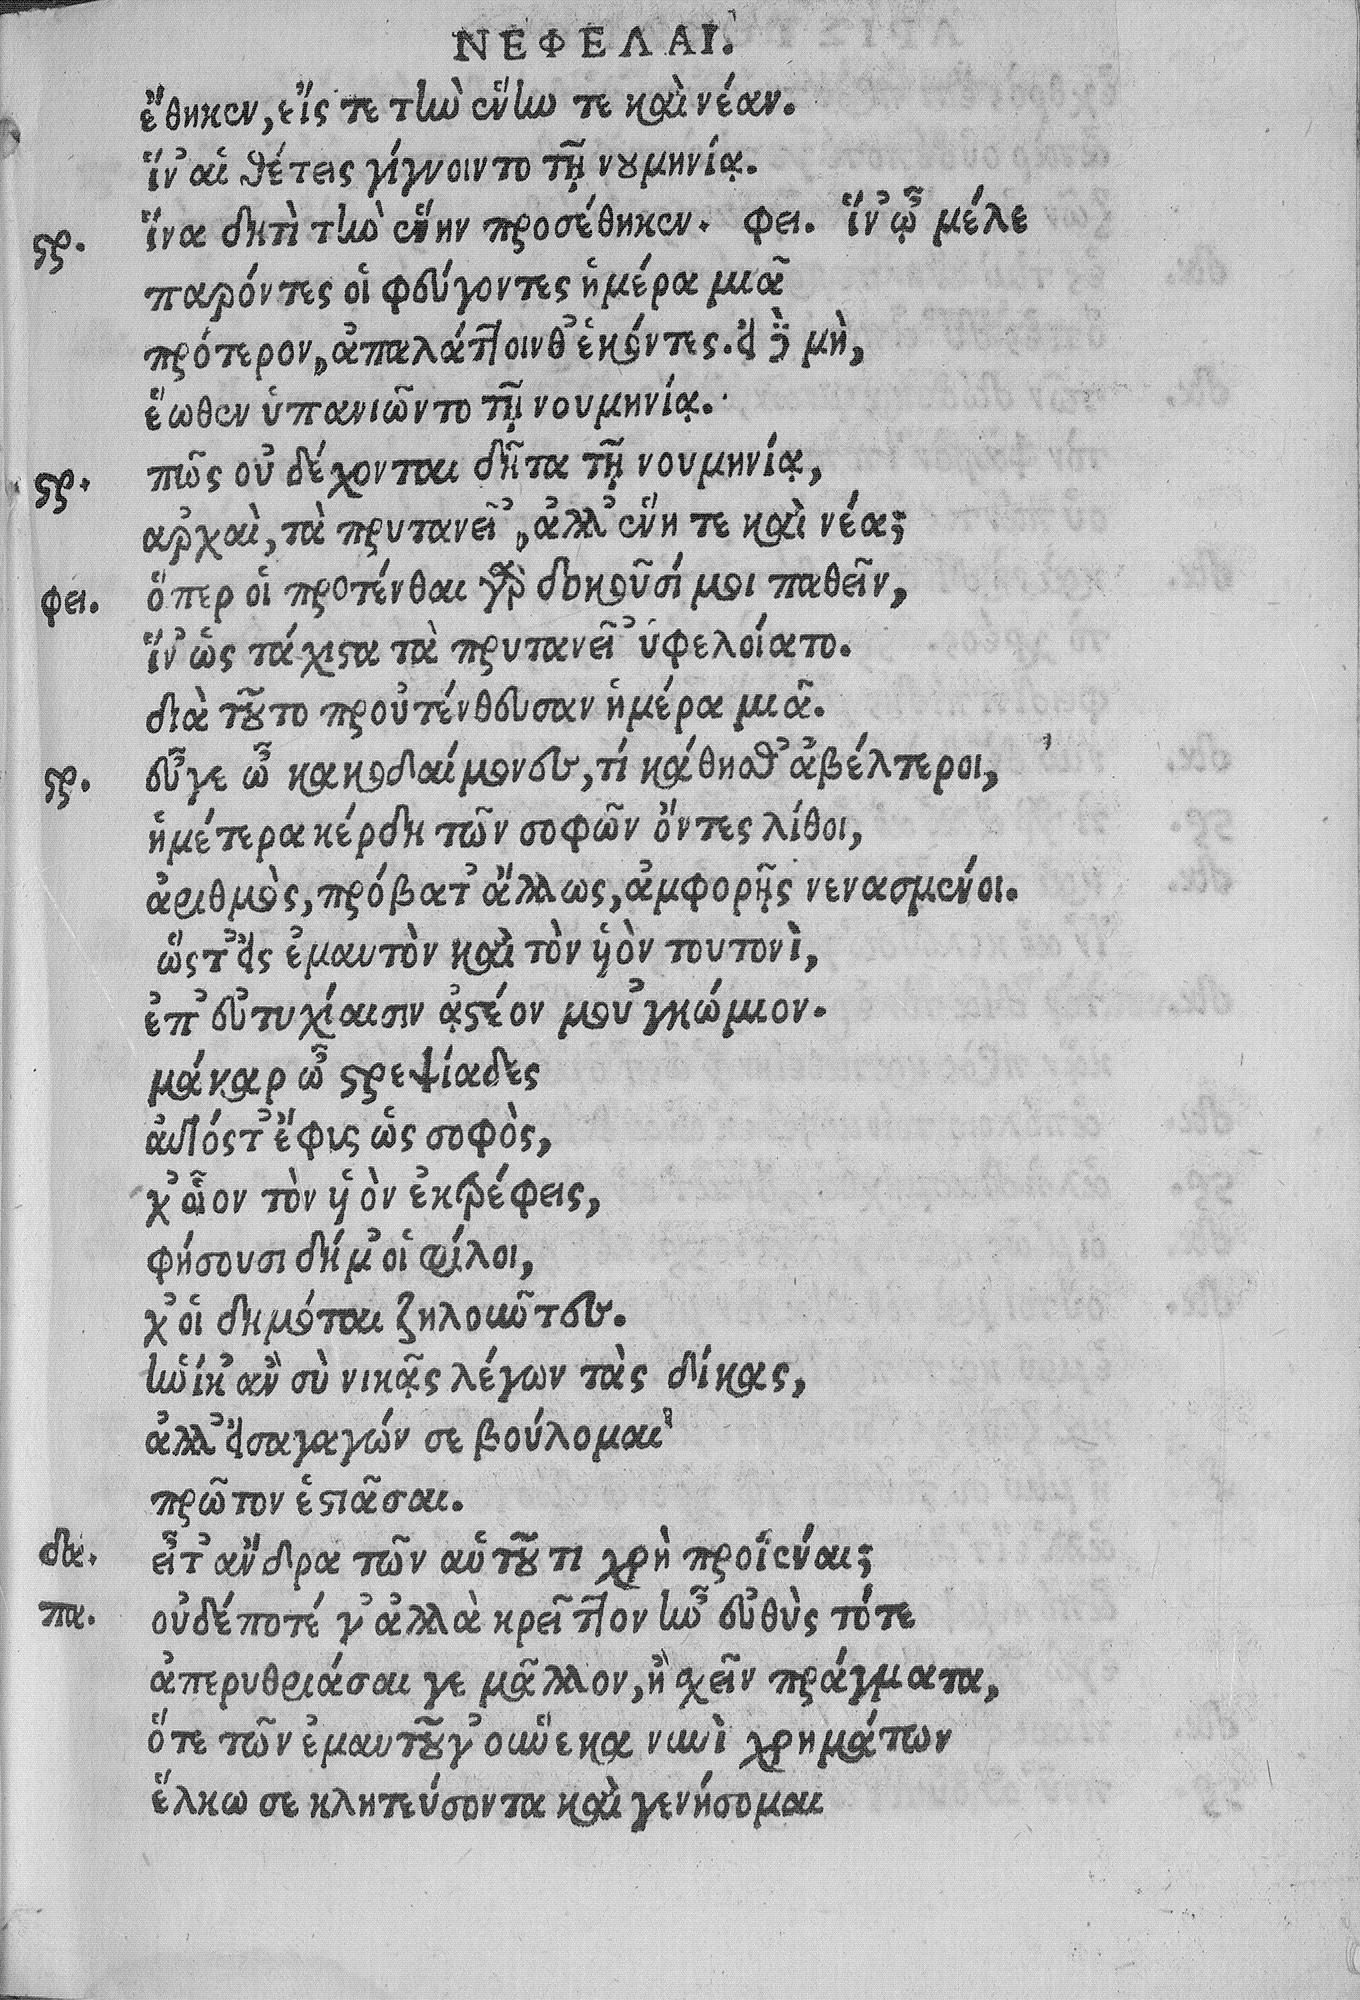 ΝΕΦΕΛΑΙ.
ἔθηκεν, εἴς τε τὴν ἕνην τε καὶ νέαν.
ἵν᾽ αἱ θέτεις γίγνοιντο τῇ νουμηνίᾳ.
στρ. ἵνα δητὶ τὴν ἕνην προσέθηκεν. φει. ἵν᾽ ᾦ μέλε
παρόντες οἱ φεύγοντες ἡμέρα μιᾶ
πρότερον, ἀπαλάττοινθ᾽ ἑκόντες. εἰ δὲ μὴ,
ἕωθεν ὑπανιῶντο τῇ νουμηνίᾳ.
στρ. πῶς οὐ δέχονται δῆτα τῇ νουμηνίᾳ,
ἀρχαὶ, τὰ πρυτανεῖ᾽, ἀλλ᾽ ἕνη τε καὶ νέα;
φει. ὅπερ οἱ προτένθαι γὰρ δοκοῦσί μοι παθεῖν,
ἵν᾽ ὡς τάχιστα τὰ πρυτανεῖ᾽ ὑφελοίατο.
διὰ τοῦτο προὐτένθευσαν ἡμέρα μιᾶ.
στρ. εὖγε ὦ κακοδαίμονευ, τί κάθηθ᾽ ἀβέλτεροι,
ἡμέτερα κέρδη τῶν σοφῶν ὄντες λίθοι,
ἀριθμὸς, πρόβατ᾽ ἄλλως, ἀμφορῇς νενασμένοι.
ὥστ᾽ εἰς ἐμαυτὸν καὶ τὸν ὑὸν τουτονὶ,
ἐπ᾽ εὐτυχίαισιν ᾀστέον μοὐγκώμιον.
μάκαρ ὦ στρεψίαδες
αὐτόστ᾽ ἔφυς ὡς σοφὸς,
χ᾽ οἷον τὸν ὑὸν ἐκτρέφεις,
φήσουσι δήμ᾽ οἱ φίλοι,
χ᾽ οἱ δημόται ζηλοῦντευ.
ἡνίκ᾽ ἂν σὺ νικᾷς λέγων τὰς δίκας,
ἀλλ᾽ εἰσαγαγών σε βούλομαι
πρῶτον ἑστιᾶσαι.
δα. εἶτ᾽ ἄνδρα τῶν αὑτοῦ τι χρὴ προϊέναι;
πα. οὐδέποτέ γ᾽ ἀλλὰ κρεῖττον ἦν εὐθὺς τότε
ἀπερυθριάσαι γε μᾶλλον, ἢ σχεῖν πράγματα,
ὅτε τῶν ἐμαυτοῦ γ᾽ οὕνεκα νυνὶ χρημάτων
ἕλκω σε κλητεύσοντα καὶ γενήσομαι